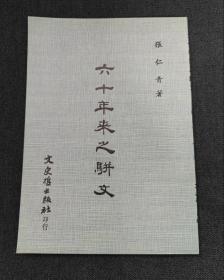 張仁青著
六十年來之駢文
文史哲出版社印行